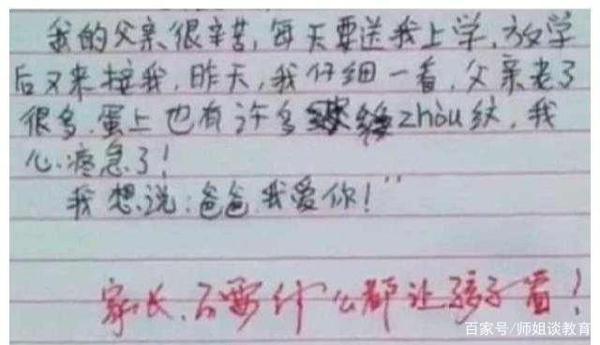 我的父亲很辛苦,每天要送我上学,放学
后又来接我,昨天,我仔细一看,父亲老了
很多,蛋上也有许多zhòu纹,我
心疼急了!
我想说:爸爸我爱你!"
家长,不要什么都让孩子看!
百家号/师姐谈教育